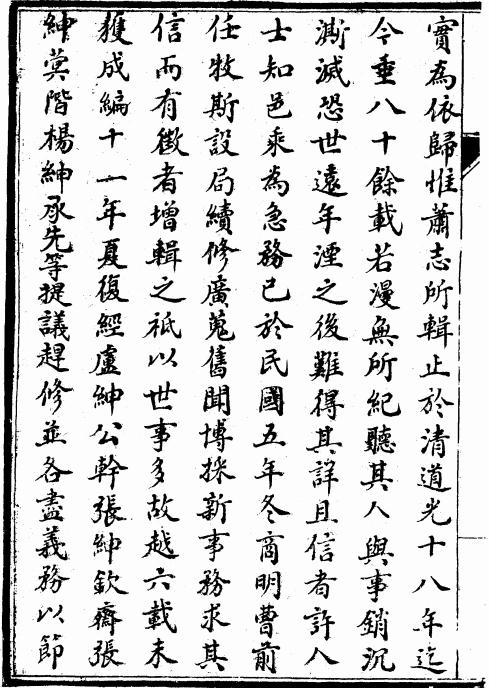 實為依歸惟蕭志所輯止於清道光十八年迄
今垂八十餘載若漫無所紀聽其人與事銷沉
澌滅恐世遠年湮之後難得其詳且信者許人
士知邑乘為急務已於民國五年冬商明曹前
任牧斯設局續修廣蒐舊聞博採新事務求其
信而有徵者增輯之祇以世事多故越六載未
獲成編十一年夏復經盧紳公幹張紳欽齋張
紳蓂階楊紳承先等提議趕修並各盡義務以節